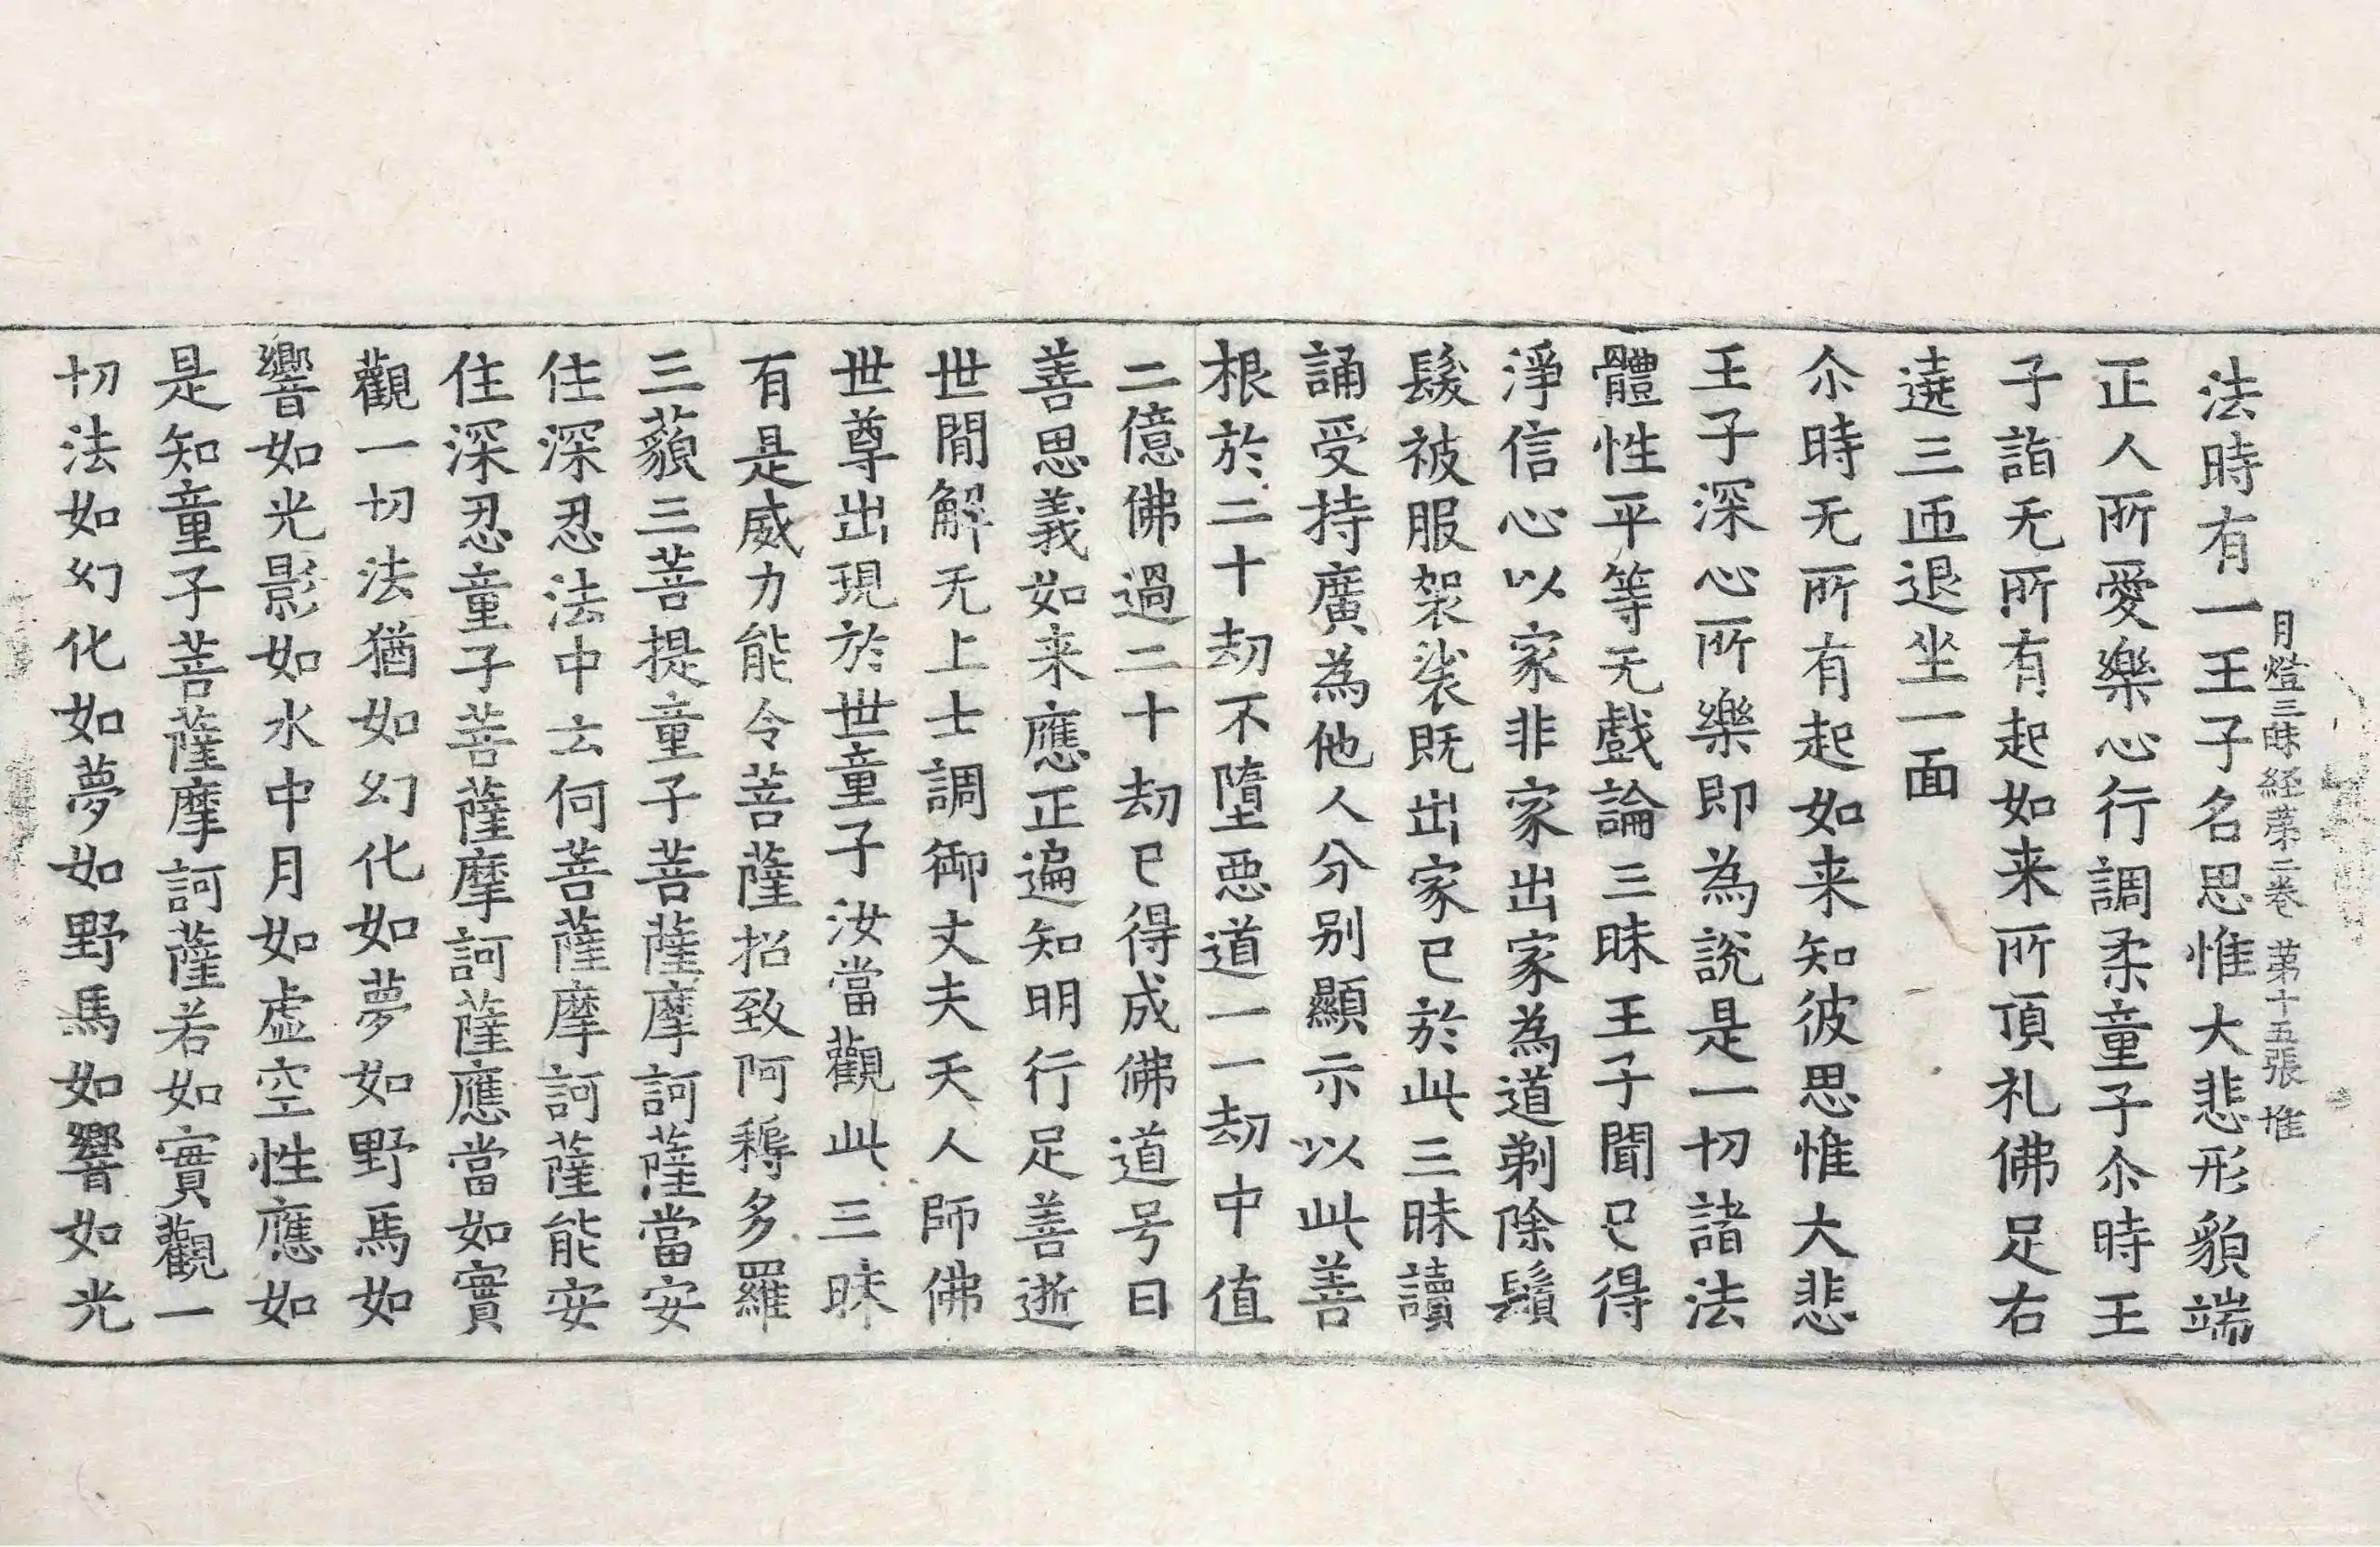 月燈三昧経第二卷 第十五張 推
法時有一王子名思惟大悲形貌端
正人所愛樂心行調柔童子尒時王
子詣无所有起如来所頂礼佛足右
遶三帀退坐一面
尒時无所有起如来知彼思惟大悲
王子深心所樂即為說是一切諸法
體性平等无戲論三昧王子聞已得
淨信心以家非家出家為道剃除鬚
髮被服袈裟既出家已於此三昧讀
誦受持廣為他人分别顯示以此善
根於二十劫不墮惡道一一劫中值
二億佛過二十劫已得成佛道号曰
善思義如来應正遍知明行足善逝
世閒解无上士調御丈夫天人師佛
世尊出現於世童子汝當觀此三昧
有是威力能令菩薩招致阿耨多羅
三藐三菩提童子菩薩摩訶薩當安
住深忍法中云何菩薩摩訶薩能安
住深忍童子菩薩摩訶薩應當如實
觀一切法猶如幻化如夢如野馬如
響如光影如水中月如虛空性應如
是知童子菩薩摩訶薩若如實觀一
切法如幻化如夢如野馬如響如光